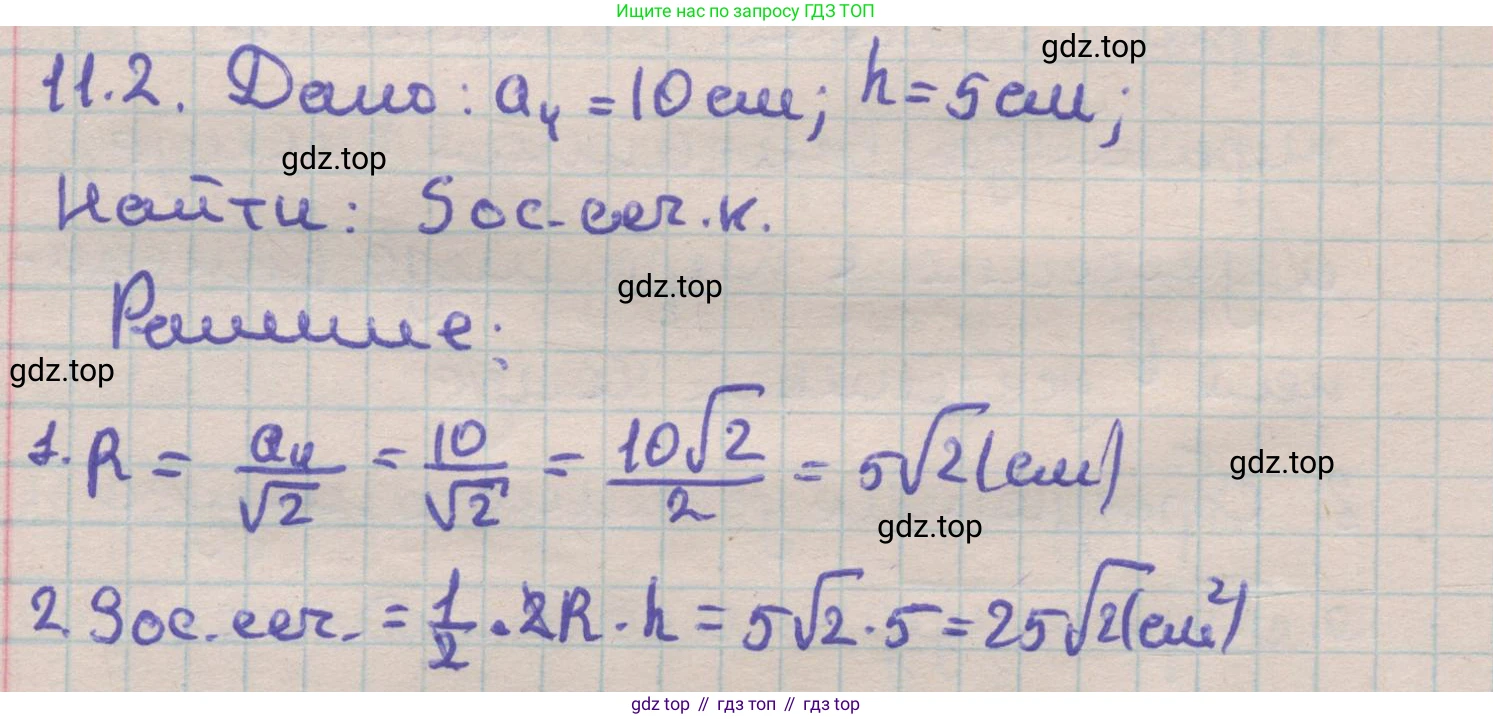 Ищите нас по запросу ГДЗ ТОП
gdz.top
11.2. Дано: a₄ = 10 см; h = 5 см;
gdz.top
Найти: Sос.сеч.к.
gdz.top
Решение:
gdz.top
1. R = a₄/√2 = 10/√2 = 10√2/2 = 5√2 (см)
gdz.top
gdz.top
2. Sос.сеч. = 1/2 · 2R · h = 5√2 · 5 = 25√2 (см²)
gdz.top // гдз топ // гдз top